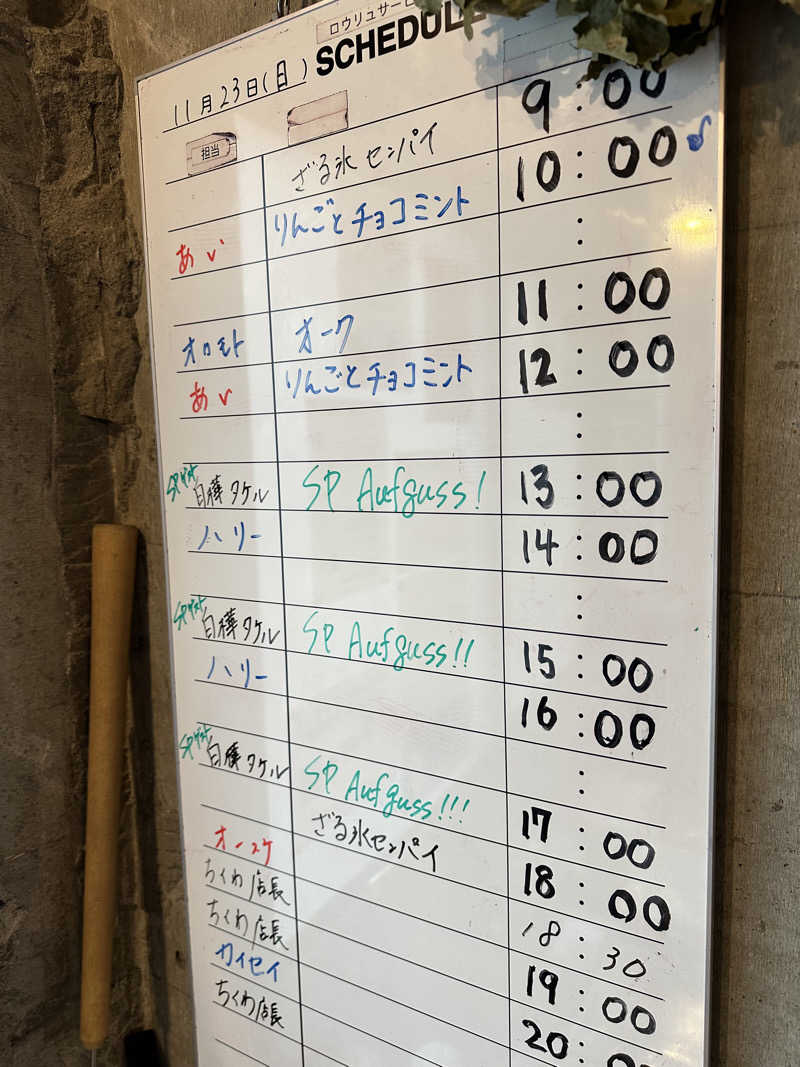 ロウリュサー
SCHEDULE
11月23日(日)
担当
ざる氷センパイ 9:00
あい りんごとチョコミント 10:00
:
オロモト オーク 11:00
あい りんごとチョコミント 12:00
:
SPゲスト 白樺タケル SP Aufguss! 13:00
ハリー 14:00
:
SPゲスト 白樺タケル SP Aufguss!! 15:00
ハリー 16:00
:
SPゲスト 白樺タケル SP Aufguss!!! 17:00
ざる氷センパイ 18:00
オースケ 18:30
ちくわ店長 19:00
ちくわ店長 20:00
カイセイ
ちくわ店長